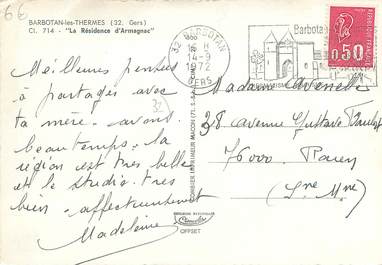 6€
BARBOTAN-les-THERMES (32. Gers)
Cl. 714 - "La Résidence d'Armagnac"
Meilleures pensées
à partager avec
ta mère - avons
beau temps - la
région est très belle
et le studio très
bien - affectueusement
Madeleine
32
32 BARBOTAN
14-9
1972
GERS
Barbota
0,50
Madame
38, avenue Gustave
76000 Rouen
(Sne Mme)
COMBIER IMPRIMEUR MACON
OFFSET